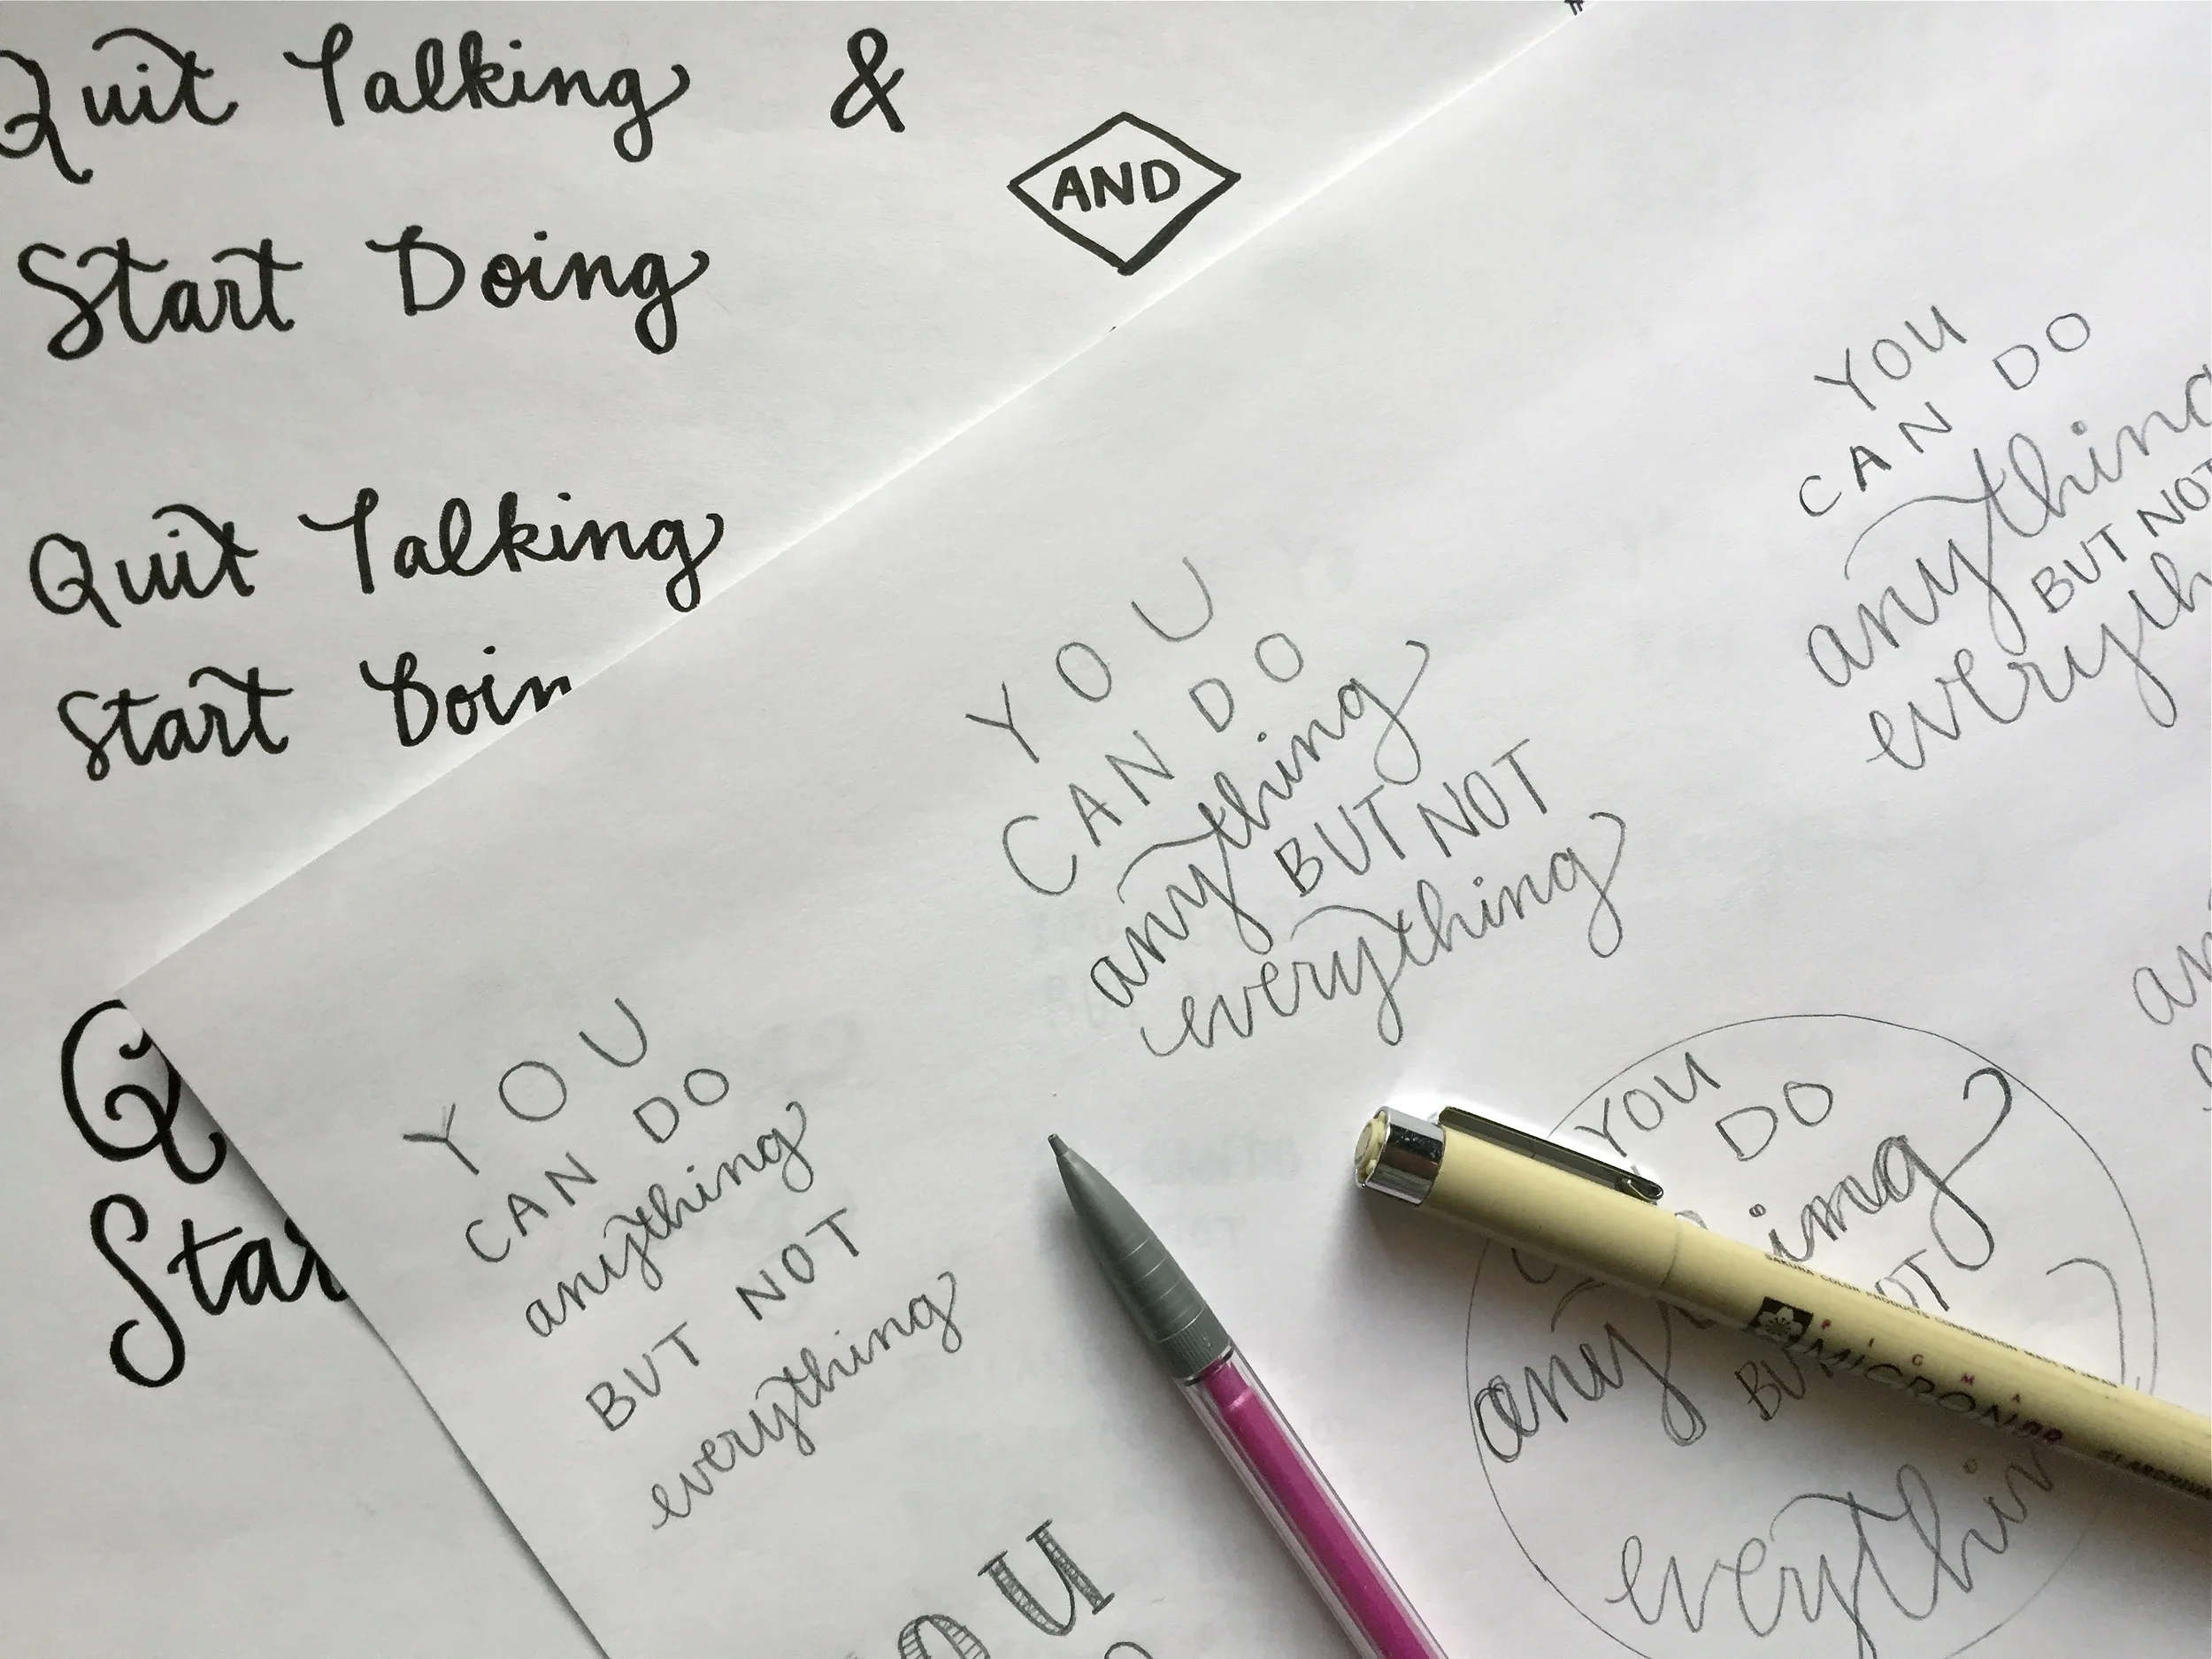 Quit Talking &
AND
Start Doing
Quit Talking
Start Doin
Q
Star
YOU
CAN DO
anything
BUT NOT
everything
YOU
CAN DO
anything
BUT NOT
everything
YOU
CAN DO
anything
BUT NOT
everyth
YOU
DO
anything
BUT NOT
everythin
OU
an
SAKURA COLOR PRODUCTS CORPORATION
PIGMA
MICRON